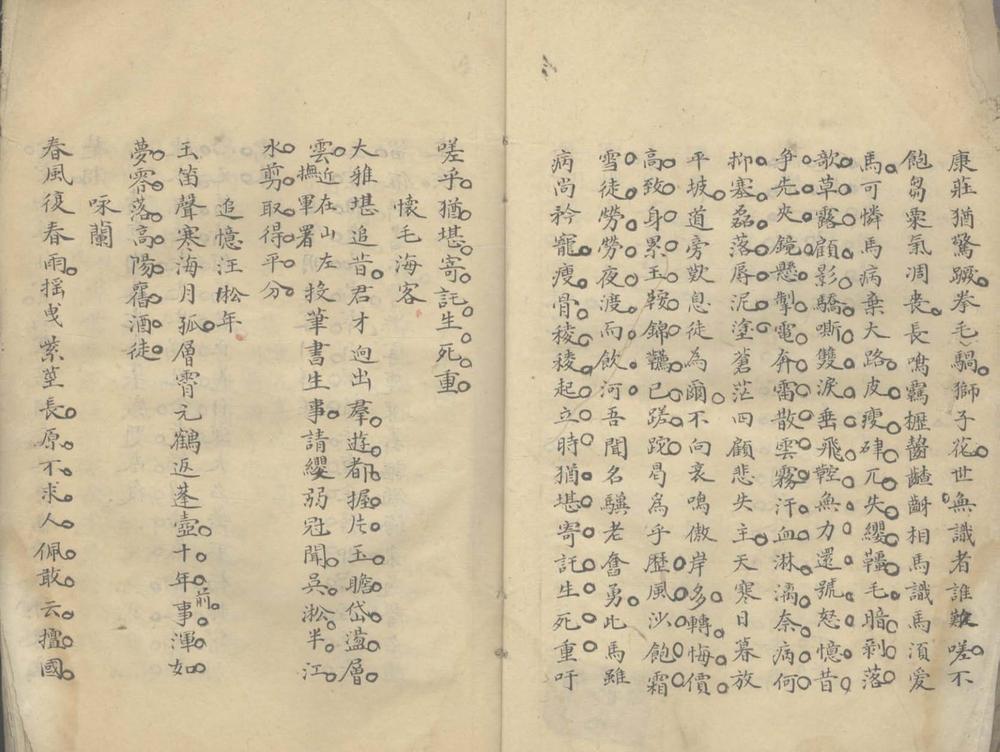 康莊猶驚蹶拳毛騧獅子花世無識者誰歎嗟不
飽芻粟氣凋喪長鳴羈櫪齧齇齖相馬識馬須愛
馬可憐馬病棄大路皮瘦硉兀失纓韁毛暗剝落
歌草露顧影驕嘶雙淚垂飛鞚無力還號怒憶昔
爭先夾鏡懸掣電奔雷散雲霧汗血淋漓奈病何
抑塞磊落辱泥塗蒼茫四顧悲失主天寒日暮放
平坡道旁歎息徒為爾不向哀鳴傲岸多轉悔價
高致身累玉鞍錦韉已蹉跎曷為乎歷風沙飽霜
雪徒勞勞夜渡而飲河吾聞名驥老奮勇此馬雖
病尚矜寵瘦骨稜稜起立時猶堪寄託生死重吁
嗟乎猶堪寄託生死重
懷毛海客
大雅堪追昔君才迥出羣遊都握片玉瞻岱盪層
雲近在山左撫軍署投筆書生事請纓弱冠聞吳淞半江
水剪取得平分
追憶汪淞年
玉笛聲寒海月孤層霄元鶴返蓬壺十年前事渾如
夢零落高陽舊酒徒
咏蘭
春風復春雨搖曳紫莖長原不求人佩敢云擅國